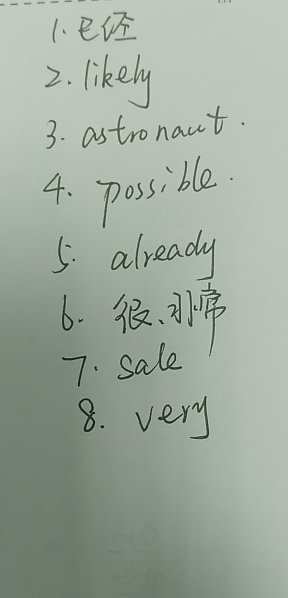 1. 已经
2. likely
3. astronaut.
4. possible.
5. already
6. 很、非常
7. sale
8. very